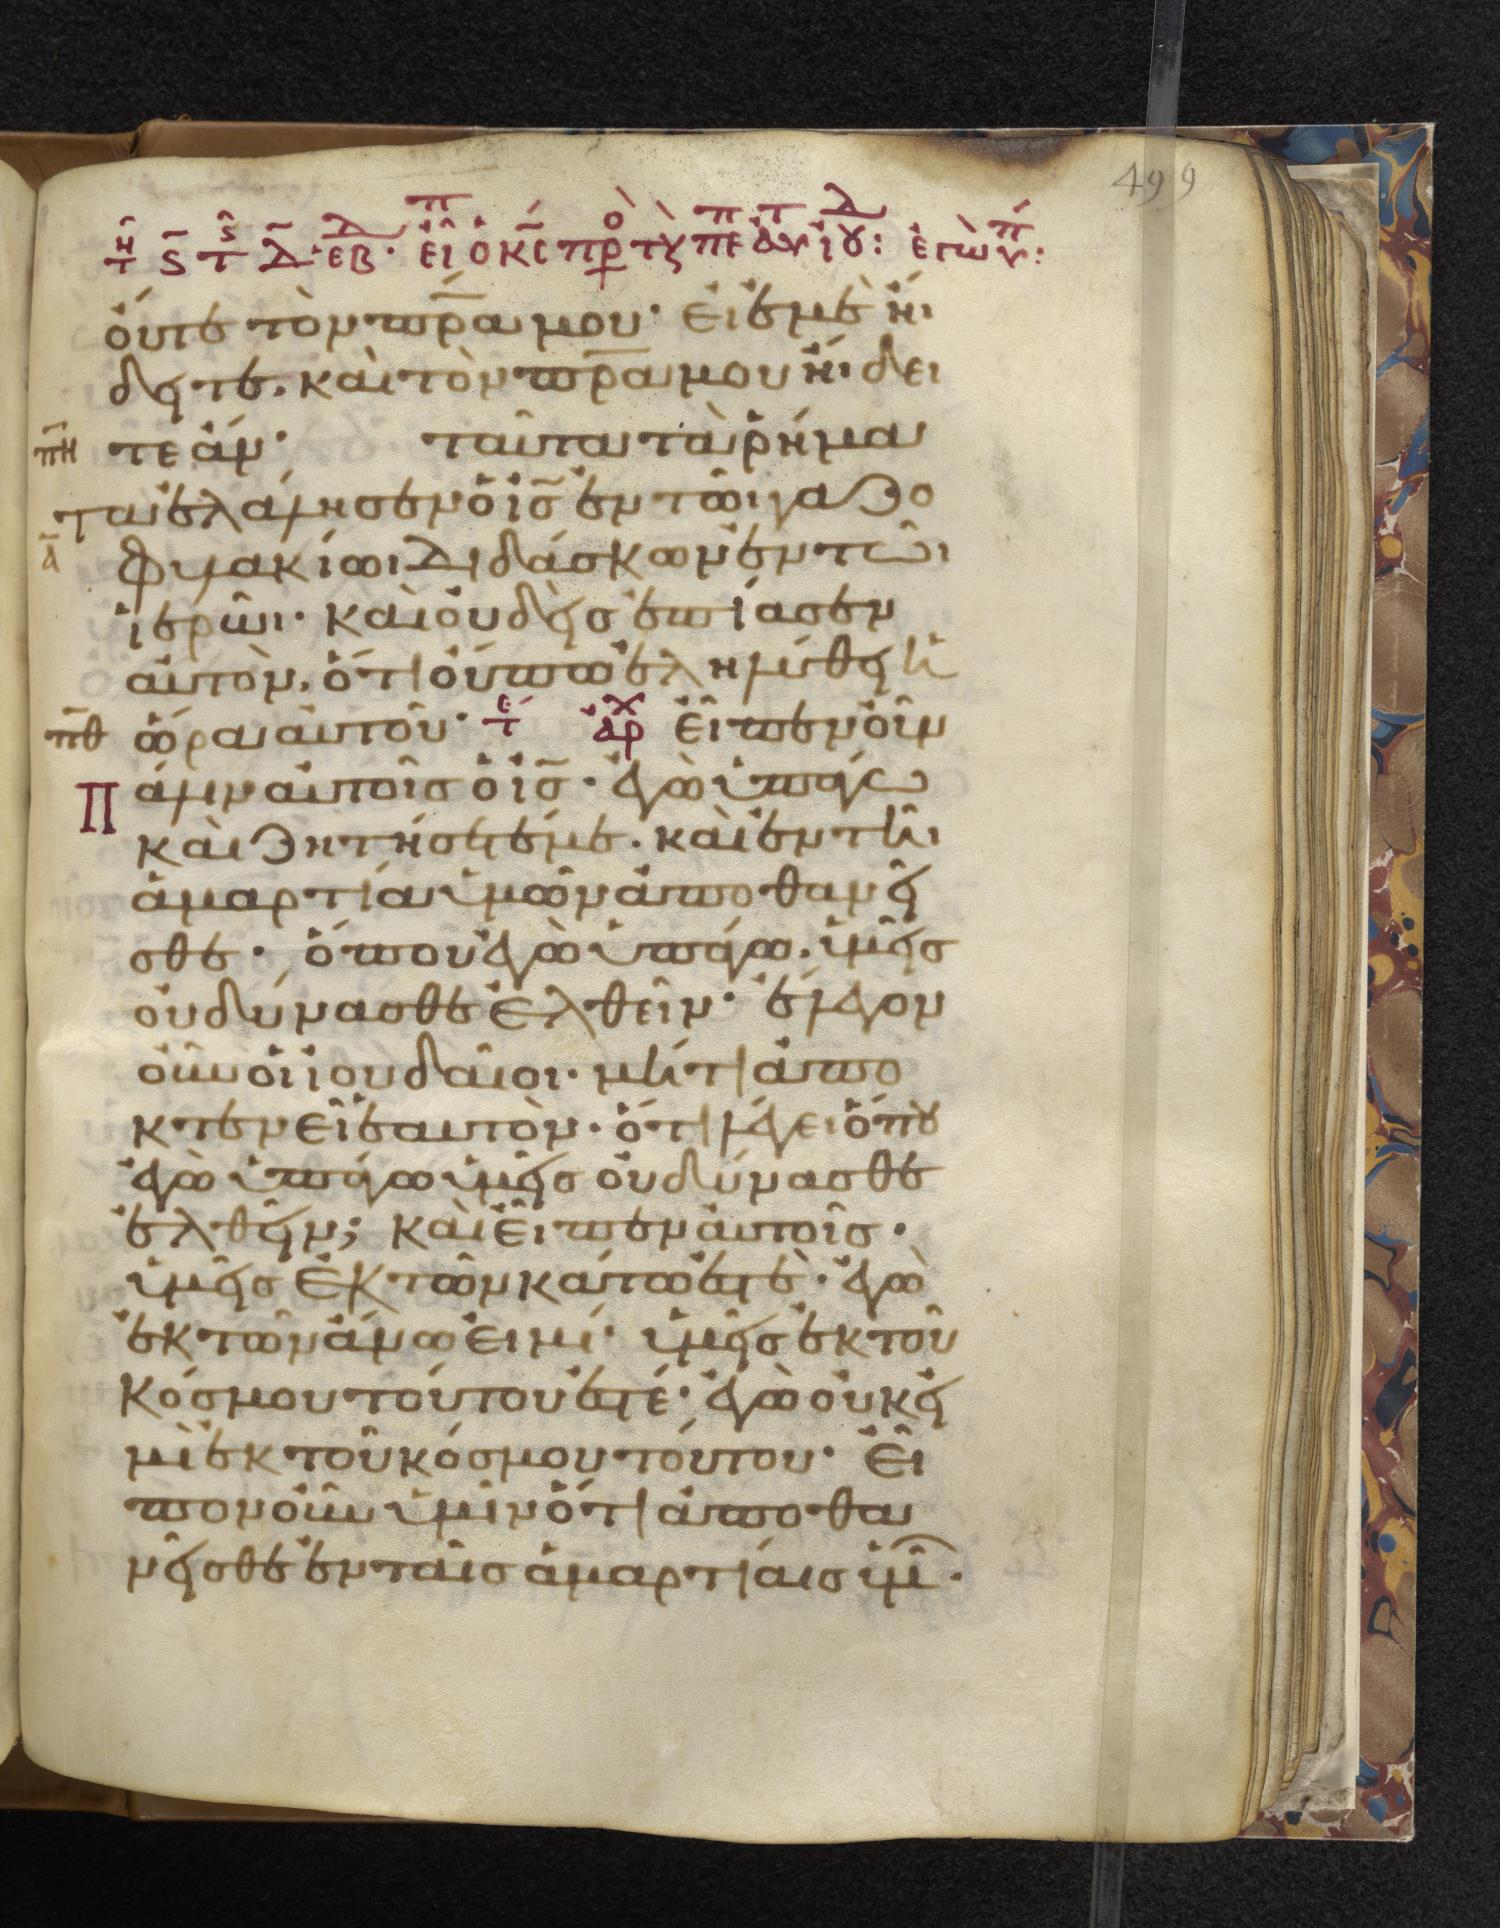 499
οὔτε τὸν π̅ρ̅α̅ μου· εἰ ἐμὲ ἤι
δειτε. καὶ τὸν π̅ρ̅α̅ μου ἤιδει
π̅η̅ τε ἄν· ταῦτα τὰ ῥήμα
τα ἐλάλησεν ὁ ι̅ς̅ ἐν τῶι γαζο
α̅ φυλακίωι διδάσκων ἐν τῶι
ἱερῶι· καὶ οὐδεὶς ἐπίασεν
αὐτὸν, ὅτι οὔπω ἐληλύθει ἡ
π̅θ̅ ὥρα αὐτοῦ· τε ἀρχ εἶπεν οὖν
Π άλιν αὐτοῖς ὁ ι̅ς̅· ἐγὼ ὑπάγω
καὶ ζητήσετέ με. καὶ ἐν τῆι
ἁμαρτία ὑμῶν ἀποθανεῖ
σθε· ὅπου ἐγὼ ὑπάγω. ὑμεῖς
οὐ δύνασθε ἐλθεῖν· ἔλεγον
οὖν οἱ ἰουδαῖοι· μήτι ἀπο
κτενεῖ ἑαυτὸν· ὅτι λέγει ὅπου
ἐγὼ ὑπάγω ὑμεῖς οὐ δύνασθε
ἐλθεῖν; καὶ εἶπεν αὐτοῖς·
ὑμεῖς ἐκ τῶν κάτω ἐστὲ· ἐγὼ
ἐκ τῶν ἄνω εἰμί· ὑμεῖς ἐκ τοῦ
κόσμου τούτου ἐστέ· ἐγὼ οὐκ εἰ
μὶ ἐκ τοῦ κόσμου τούτου· εἶ
πον οὖν ὑμῖν ὅτι ἀποθα
νεῖσθε ἐν ταῖς ἁμαρτίαις ὑμῶν·